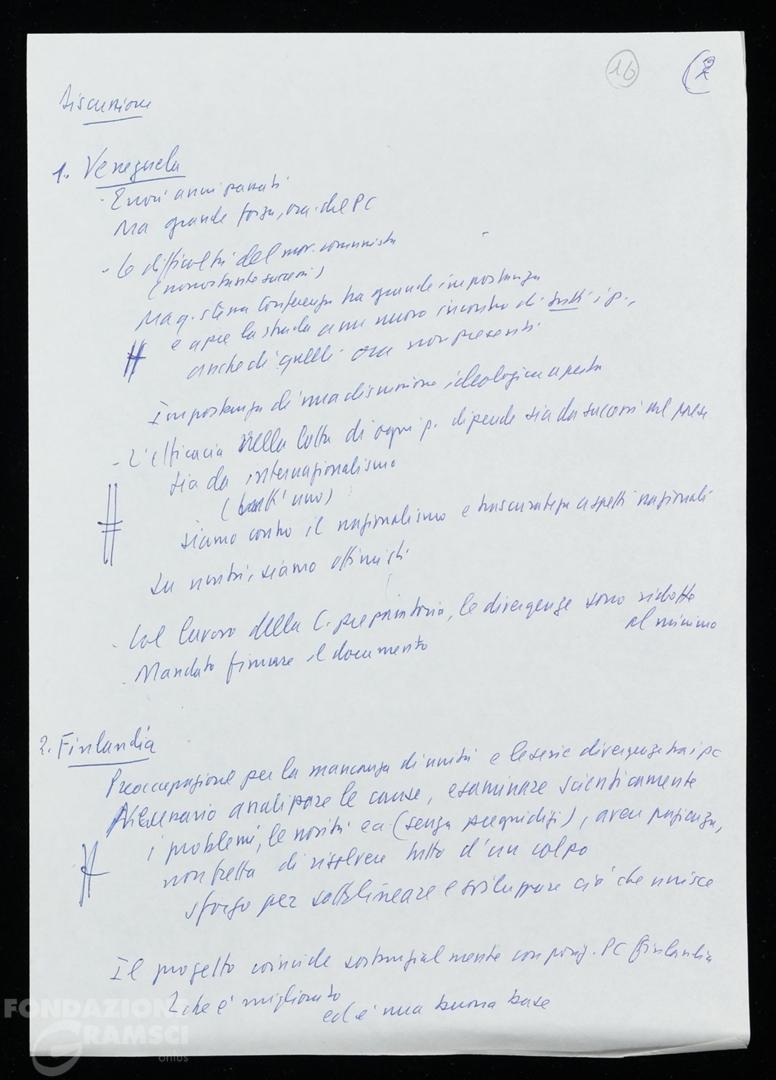 16
2
Discussione
1. Venezuela
- Errori anni passati
Ma grande forza, ora del PC
- Le difficoltà del mov. comunista
(nonostante successi)
Ma q. stessa Conferenza ha grande importanza
e apre la strada a un nuovo incontro di tutti i p.,
anche di quelli ora non presenti
Importanza di una discussione ideologica aperta
- L'efficacia nella lotta di ogni p. dipende sia da successi nel paese
sia da internazionalismo
(tutt'uno)
siamo contro il nazionalismo e trascuratezza aspetti nazionali
Su unità, siamo ottimisti
- Col lavoro della C. preparatoria, le divergenze sono ridotte
al minimo
- Mandato firmare il documento
2. Finlandia
Preoccupazione per la mancanza di unità e le serie divergenze tra i pc
Necessario analizzare le cause, esaminare scientificamente
i problemi, le novità ecc (senza pregiudizi), aver pazienza,
non fretta di risolvere tutto d'un colpo
sforzo per sottolineare e sviluppare ciò che unisce
Il progetto coincide sostanzialmente con posiz. PC finlandia
che è migliorato
ed è una buona base
FONDAZIONE
GRAMSCI
onlus